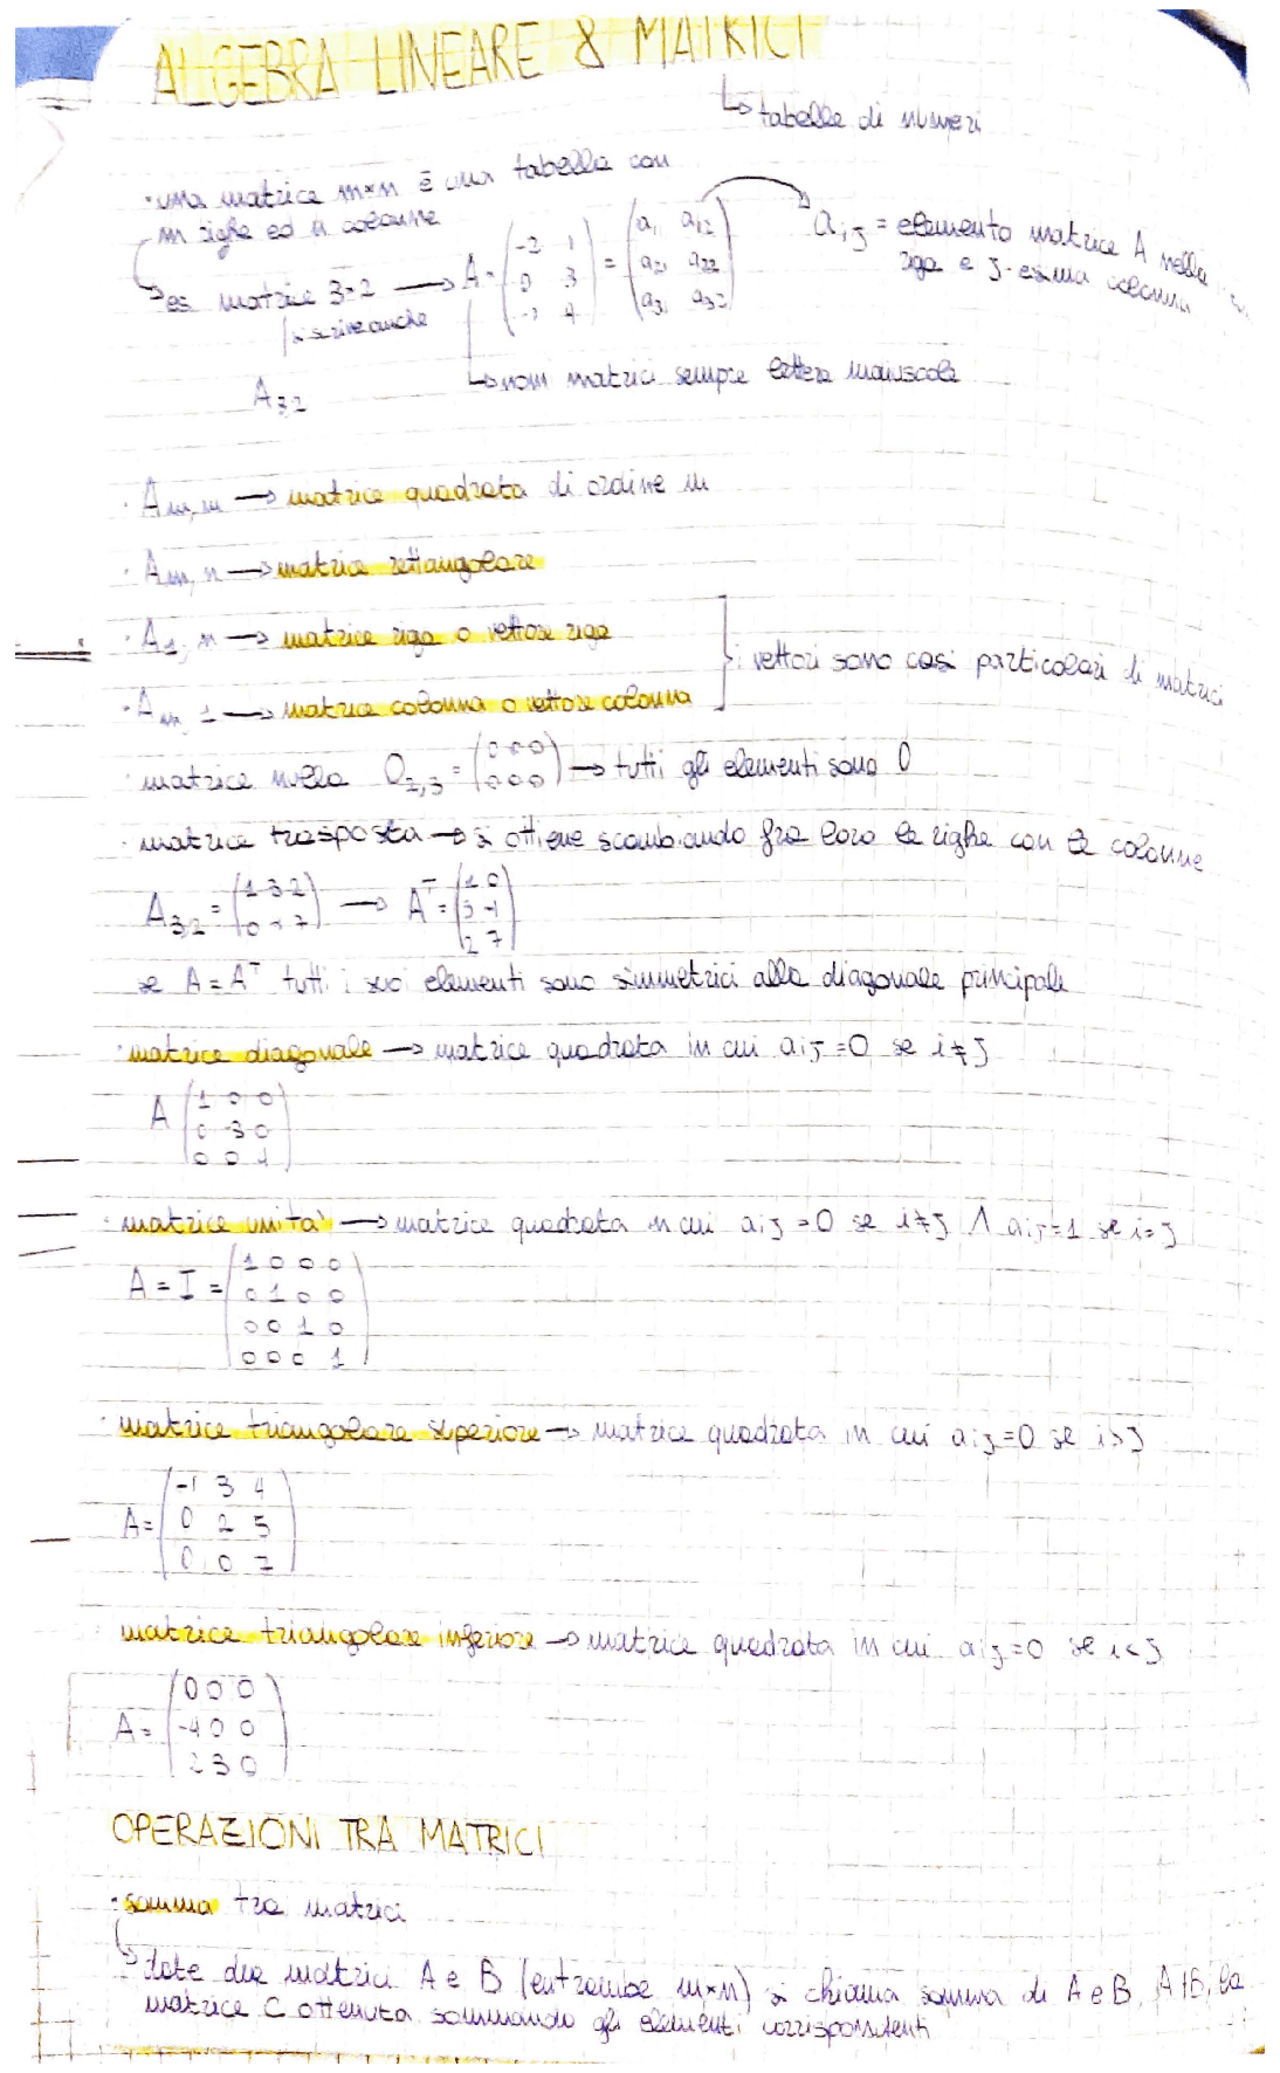 ALGEBRA LINEARE & MATRICI
↳ tabelle di numeri
· una matrice m×n è una tabella con
m righe ed n colonne
↳ es matrice 3×2 → A = (-2 1 / 0 3 / -7 4) = (a₁₁ a₁₂ / a₂₁ a₂₂ / a₃₁ a₃₂)
aᵢⱼ = elemento matrice A nella
riga e J-esima colonna
si scrive anche
A₃,₂
↳ nomi matrici sempre lettera maiuscola
· Aₘ,ₘ → matrice quadrata di ordine m
· Aₘ,ₙ → matrice rettangolare
· A₁,ₙ → matrice riga o vettore riga
· Aₘ,₁ → matrice colonna o vettore colonna
i vettori sono casi particolari di matrici
· matrice nulla O₂,₃ = (0 0 0 / 0 0 0) → tutti gli elementi sono 0
· matrice trasposta → si ottiene scambiando fra loro le righe con le colonne
A₃,₂ = (1 3 2 / 0 -1 7) → Aᵀ = (1 0 / 3 -1 / 2 7)
se A = Aᵀ tutti i suoi elementi sono simmetrici alla diagonale principale
· matrice diagonale → matrice quadrata in cui aᵢⱼ = 0 se i ≠ J
A (1 0 0 / 0 -3 0 / 0 0 1)
· matrice unità → matrice quadrata in cui aᵢⱼ = 0 se i ≠ J ∧ aᵢⱼ = 1 se i = J
A = I = (1 0 0 0 / 0 1 0 0 / 0 0 1 0 / 0 0 0 1)
· matrice triangolare superiore → matrice quadrata in cui aᵢⱼ = 0 se i > J
A = (-1 3 4 / 0 2 5 / 0 0 7)
matrice triangolare inferiore → matrice quadrata in cui aᵢⱼ = 0 se i < J
A = (0 0 0 / -4 0 0 / 2 3 0)
OPERAZIONI TRA MATRICI
· somma tra matrici
↳ date due matrici A e B (entrambe m×n) si chiama somma di A e B, A+B, la
matrice C ottenuta sommando gli elementi corrispondenti